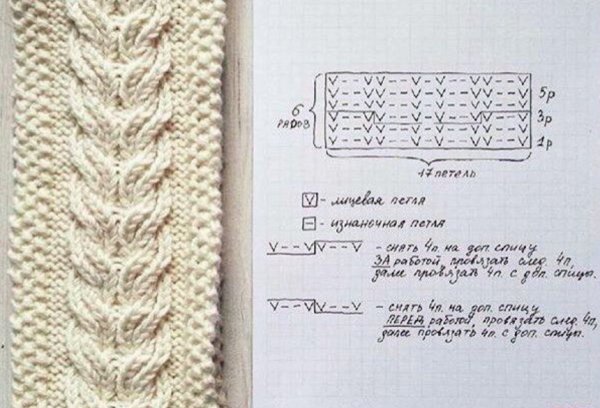 5р
6 рядов
3р
1р
17 петель
V - лицевая петля
− - изнаночная петля
V−−VV−−V - снять 4п. на доп. спицу
ЗА работой, провязать след. 4п,
далее провязать 4п. с доп. спицы.
V−−VV−−V - снять 4п. на доп. спицу
ПЕРЕД работой, провязать след. 4п,
далее провязать 4п. с доп. спицы.